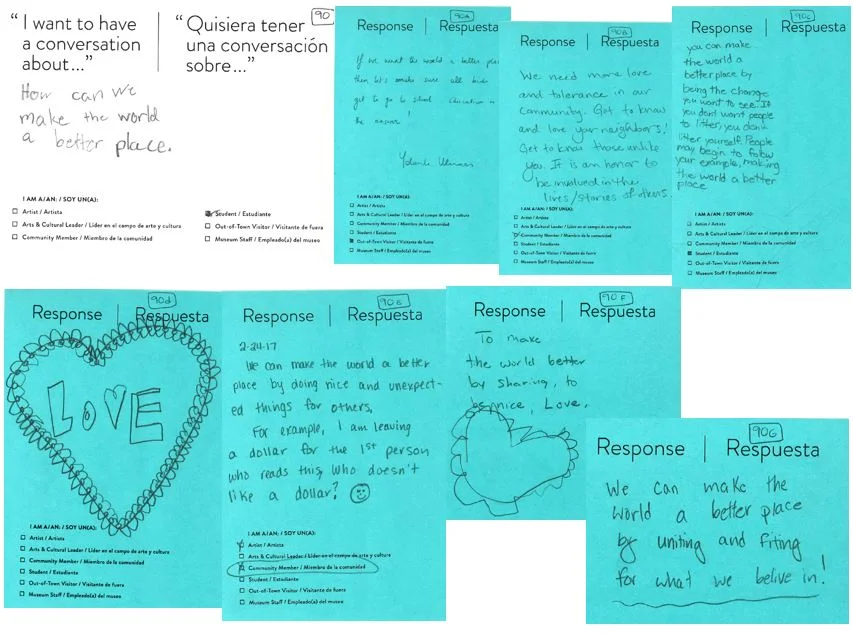 90
“ I want to have
a conversation
about...”
“ Quisiera tener
una conversación
sobre...”
How can we
make the world
a better place.
I AM A/AN: / SOY UN(A):
Artist / Artista
Arts & Cultural Leader / Líder en el campo de arte y cultura
Community Member / Miembro de la comunidad
Student / Estudiante
Out-of-Town Visitor / Visitante de fuera
Museum Staff / Empleado(a) del museo
90A
Response | Respuesta
If we want the world a better place
then let's make sure all kids
get to go to school education is
the answer!
I AM A/AN: / SOY UN(A):
Artist / Artista
Arts & Cultural Leader / Líder en el campo de arte y cultura
Community Member / Miembro de la comunidad
Student / Estudiante
Out-of-Town Visitor / Visitante de fuera
Museum Staff / Empleado(a) del museo
90B
Response | Respuesta
We need more love
and tolerance in our
community. Get to know
and love your neighbors!
Get to know those unlike
you. It is an honor to
be involved in the
lives/stories of others.
I AM A/AN: / SOY UN(A):
Artist / Artista
Arts & Cultural Leader / Líder en el campo de arte y cultura
Community Member / Miembro de la comunidad
Student / Estudiante
Out-of-Town Visitor / Visitante de fuera
Museum Staff / Empleado(a) del museo
90C
Response | Respuesta
you can make
the world a
better place by
being the change
you want to see. If
you don't want people
to litter, you don't
litter yourself. People
may begin to follow
your example, making
the world a better
place
I AM A/AN: / SOY UN(A):
Artist / Artista
Arts & Cultural Leader / Líder en el campo de arte y cultura
Community Member / Miembro de la comunidad
Student / Estudiante
Out-of-Town Visitor / Visitante de fuera
Museum Staff / Empleado(a) del museo
90d
Response | Respuesta
LOVE
I AM A/AN: / SOY UN(A):
Artist / Artista
Arts & Cultural Leader / Líder en el campo de arte y cultura
Community Member / Miembro de la comunidad
Student / Estudiante
Out-of-Town Visitor / Visitante de fuera
Museum Staff / Empleado(a) del museo
90E
Response | Respuesta
2-24-17
We can make the world a better
place by doing nice and unexpect-
ed things for others.
For example, I am leaving
a dollar for the 1st person
who reads this, who doesn't
like a dollar? ☺
I AM A/AN: / SOY UN(A):
Artist / Artista
Arts & Cultural Leader / Líder en el campo de arte y cultura
Community Member / Miembro de la comunidad
Student / Estudiante
Out-of-Town Visitor / Visitante de fuera
Museum Staff / Empleado(a) del museo
90F
Response | Respuesta
To make
the world better
by sharing, to
be nice, Love.
90G
Response | Respuesta
We can make the
world a better place
by uniting and fiting
for what we belive in!